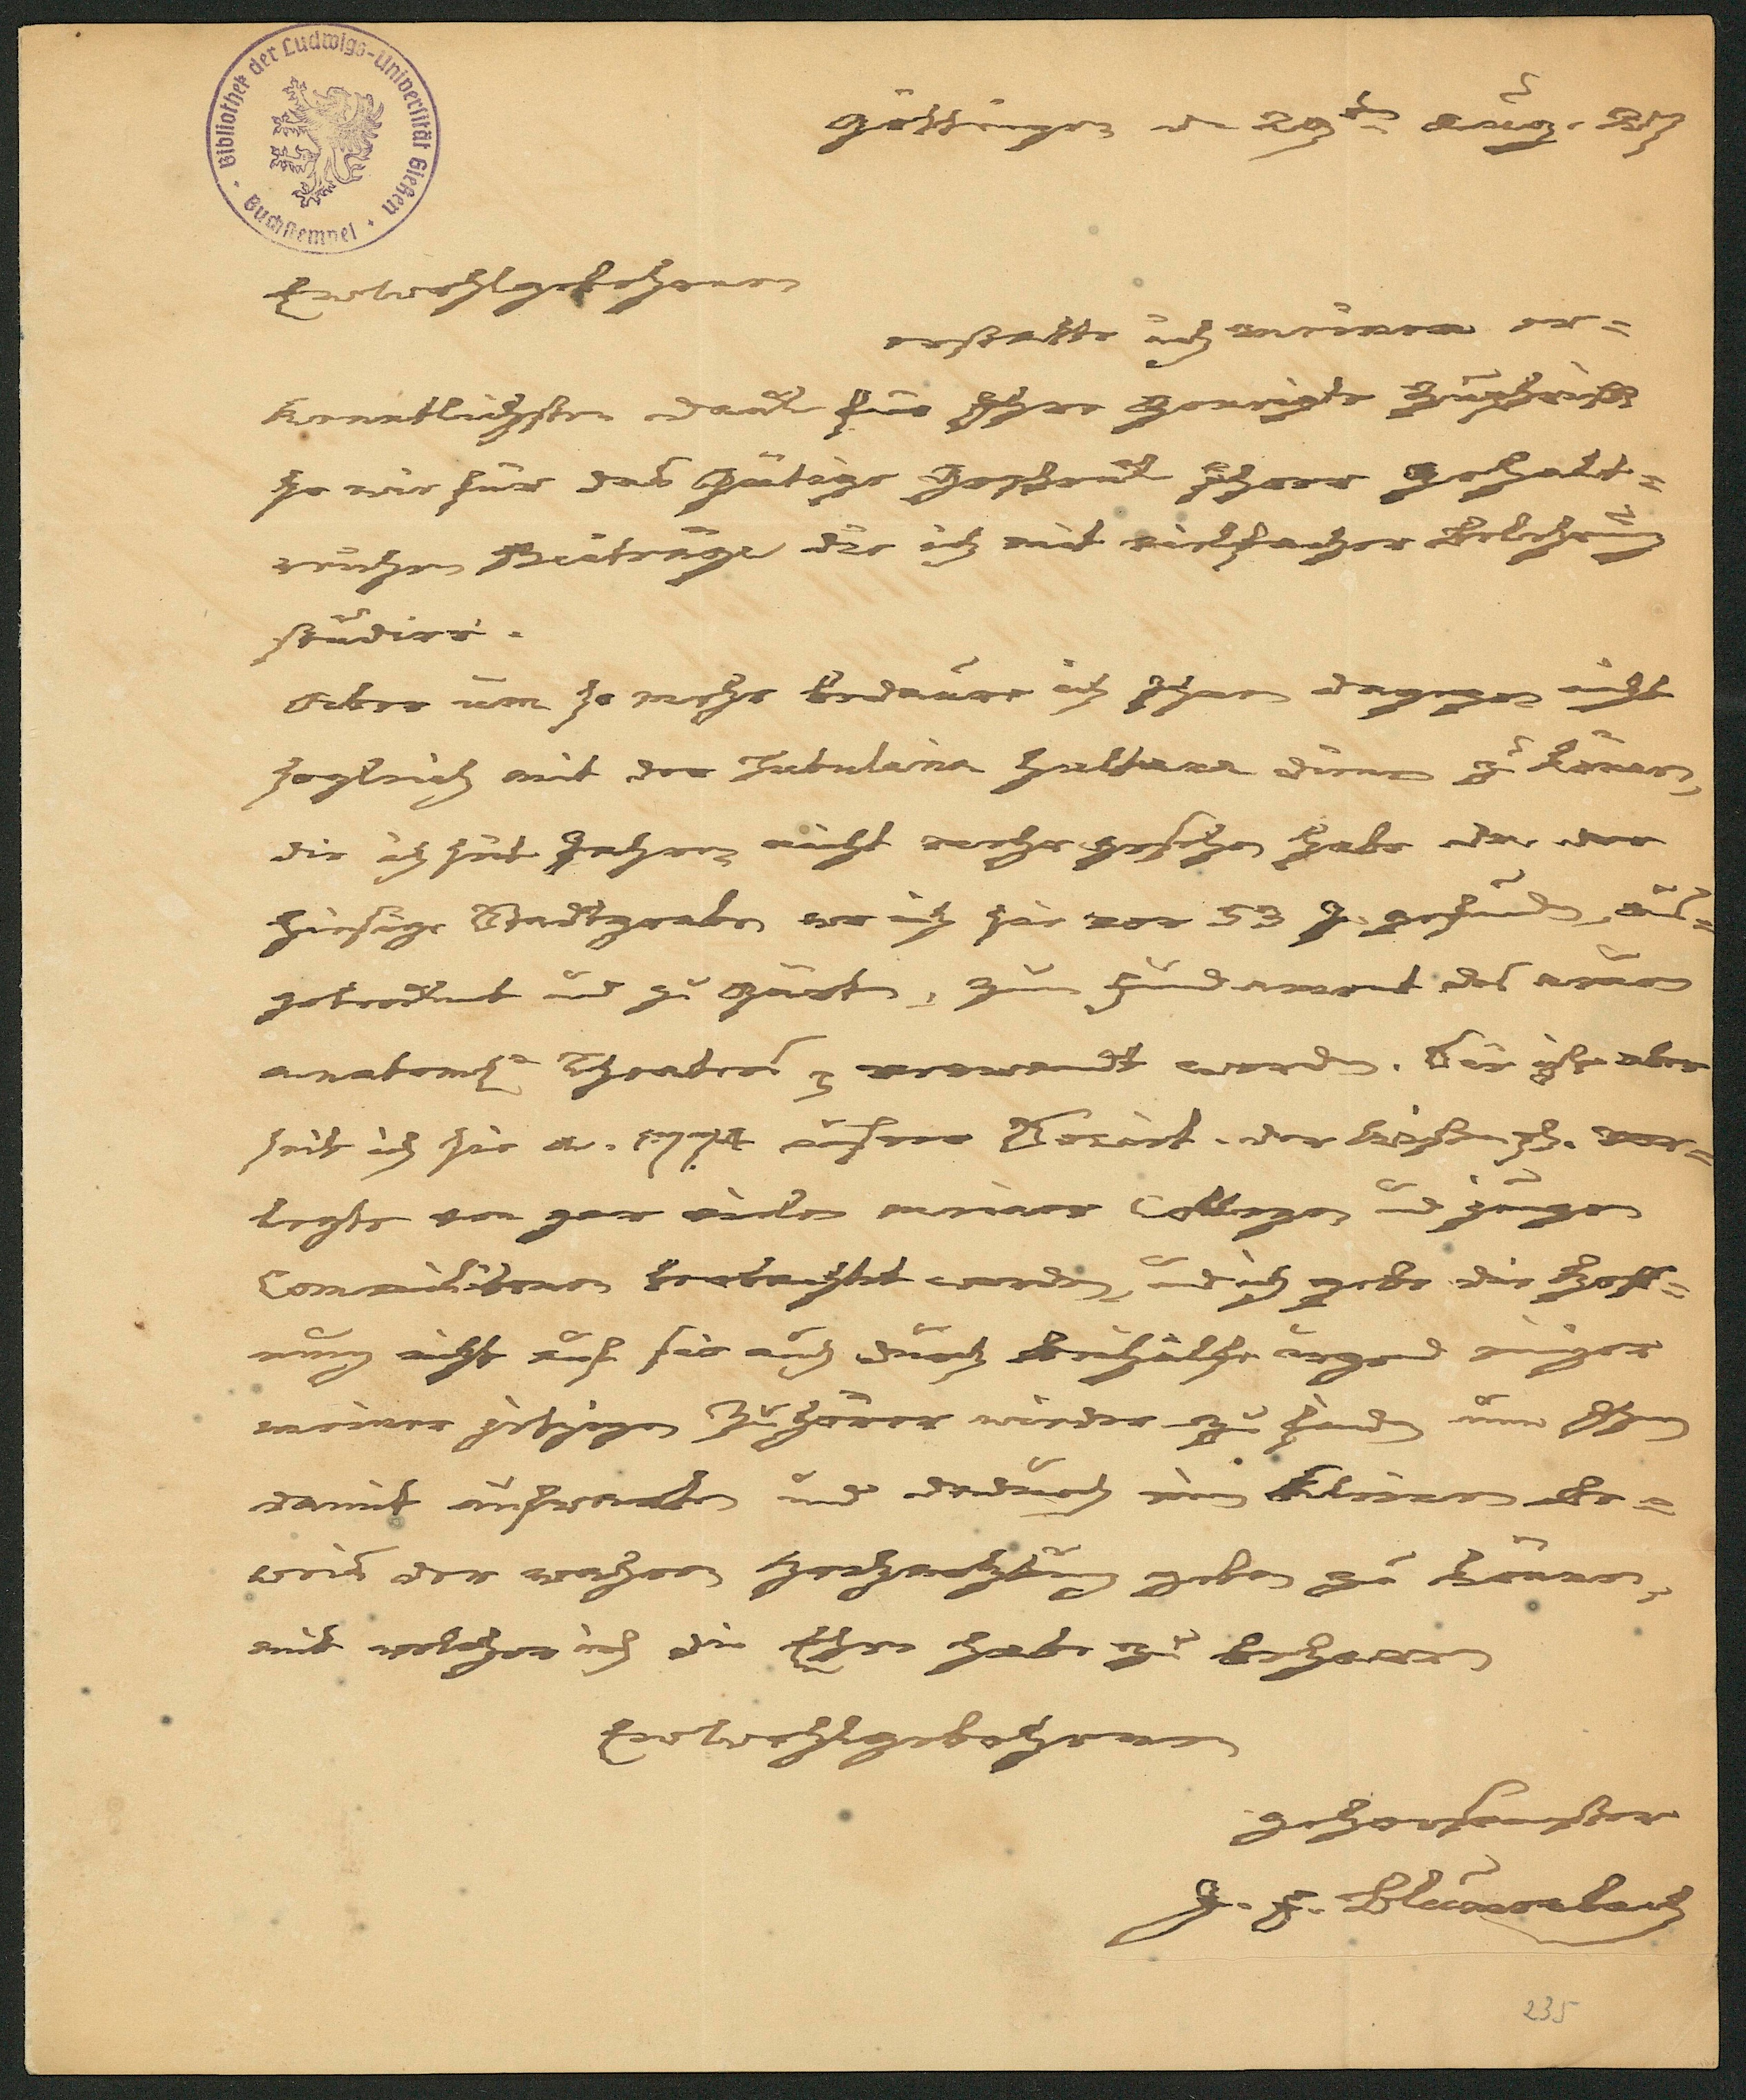 Bibliothek der Ludwigs-Universität Gießen
Buchstempel
Göttingen d. 29ten Aug. 27
Ew Wohlgebohren
erstatte ich meinen er=
kenntlichsten Dank für Ihre geneigte Zuschrift
so wie für das gütige Geschenk Ihrer gehalt=
reichen Beiträge die ich mit vielfacher Belehrung
studire.
Aber um so mehr bedaure ich Ihnen dagegen nicht
sogleich mit der Tubularia Sultana dienen zu können,
die ich seit Jahren nicht mehr gesehen habe da der
hiesige Stadtgraben wo ich sie vor 53 J. gefunden, aus=
getrocknet und zu Gärten, zum Fundament des neuen
anatomischen Theaters verwandt worden. Sie ist aber
seit ich sie a. 1774 unsrer Societ. der Wissensch. vor=
legte von gar vielen meiner Collegen und jungen
Commilitonen beobachtet worden, und ich gebe die Hoff=
nung nicht auf sie auch durch Beihülfe irgend einiger
meiner jetzigen Zuhörer wieder zu finden um Ihnen
damit aufwarten und dadurch einen kleinen Be=
weis der wahren Hochachtung geben zu können,
mit welcher ich die Ehre habe zu beharren
Ew Wohlgebohren
gehorsamster
J. F. Blumenbach
235